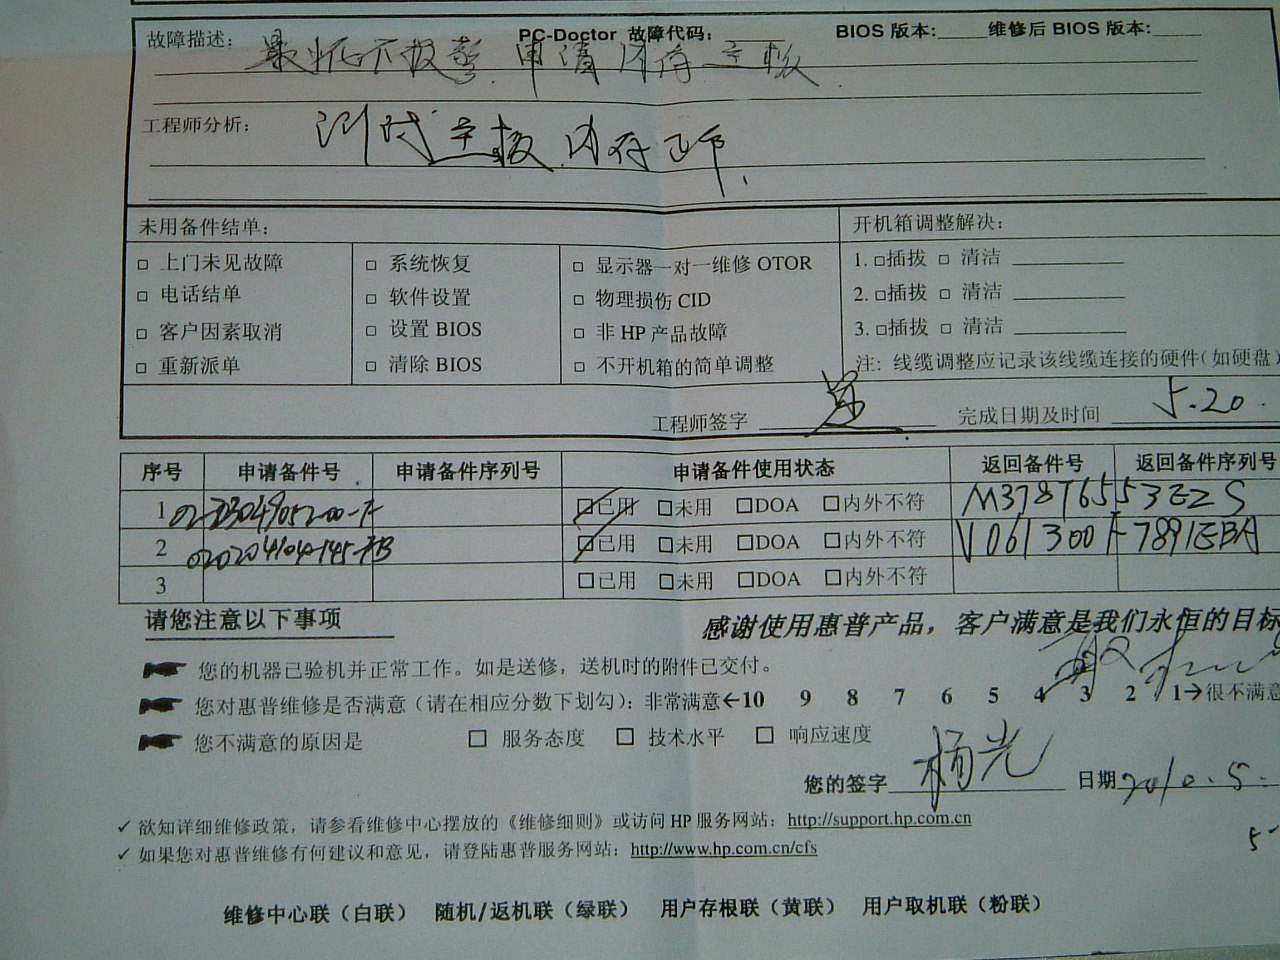 故障描述: PC-Doctor 故障代码: BIOS 版本: 维修后 BIOS 版本:
不报警 申请内存 主板
工程师分析:
测试主板 内存正常.
未用备件结单: 开机箱调整解决:
□ 上门未见故障 □ 系统恢复 □ 显示器一对一维修 OTOR 1. □插拔 □ 清洁
□ 电话结单 □ 软件设置 □ 物理损伤 CID 2. □插拔 □ 清洁
□ 客户因素取消 □ 设置 BIOS □ 非 HP 产品故障 3. □插拔 □ 清洁
□ 重新派单 □ 清除 BIOS □ 不开机箱的简单调整 注: 线缆调整应记录该线缆连接的硬件(如硬盘)
工程师签字 完成日期及时间 5.20
序号 申请备件号 申请备件序列号 申请备件使用状态 返回备件号 返回备件序列号
1 □已用 □未用 □DOA □内外不符 M378T6553EZS
2 □已用 □未用 □DOA □内外不符 V061300F7891EBA
3 □已用 □未用 □DOA □内外不符
请您注意以下事项 感谢使用惠普产品，客户满意是我们永恒的目标
您的机器已验机并正常工作。如是送修，送机时的附件已交付。
您对惠普维修是否满意（请在相应分数下划勾）：非常满意←10 9 8 7 6 5 4 3 2 1→很不满意
您不满意的原因是 □ 服务态度 □ 技术水平 □ 响应速度
您的签字 杨光 日期 2010.5.
✓ 欲知详细维修政策，请参看维修中心摆放的《维修细则》或访问 HP 服务网站：http://support.hp.com.cn
✓ 如果您对惠普维修有何建议和意见，请登陆惠普服务网站：http://www.hp.com.cn/cfs
维修中心联（白联） 随机/返机联（绿联） 用户存根联（黄联） 用户取机联（粉联）